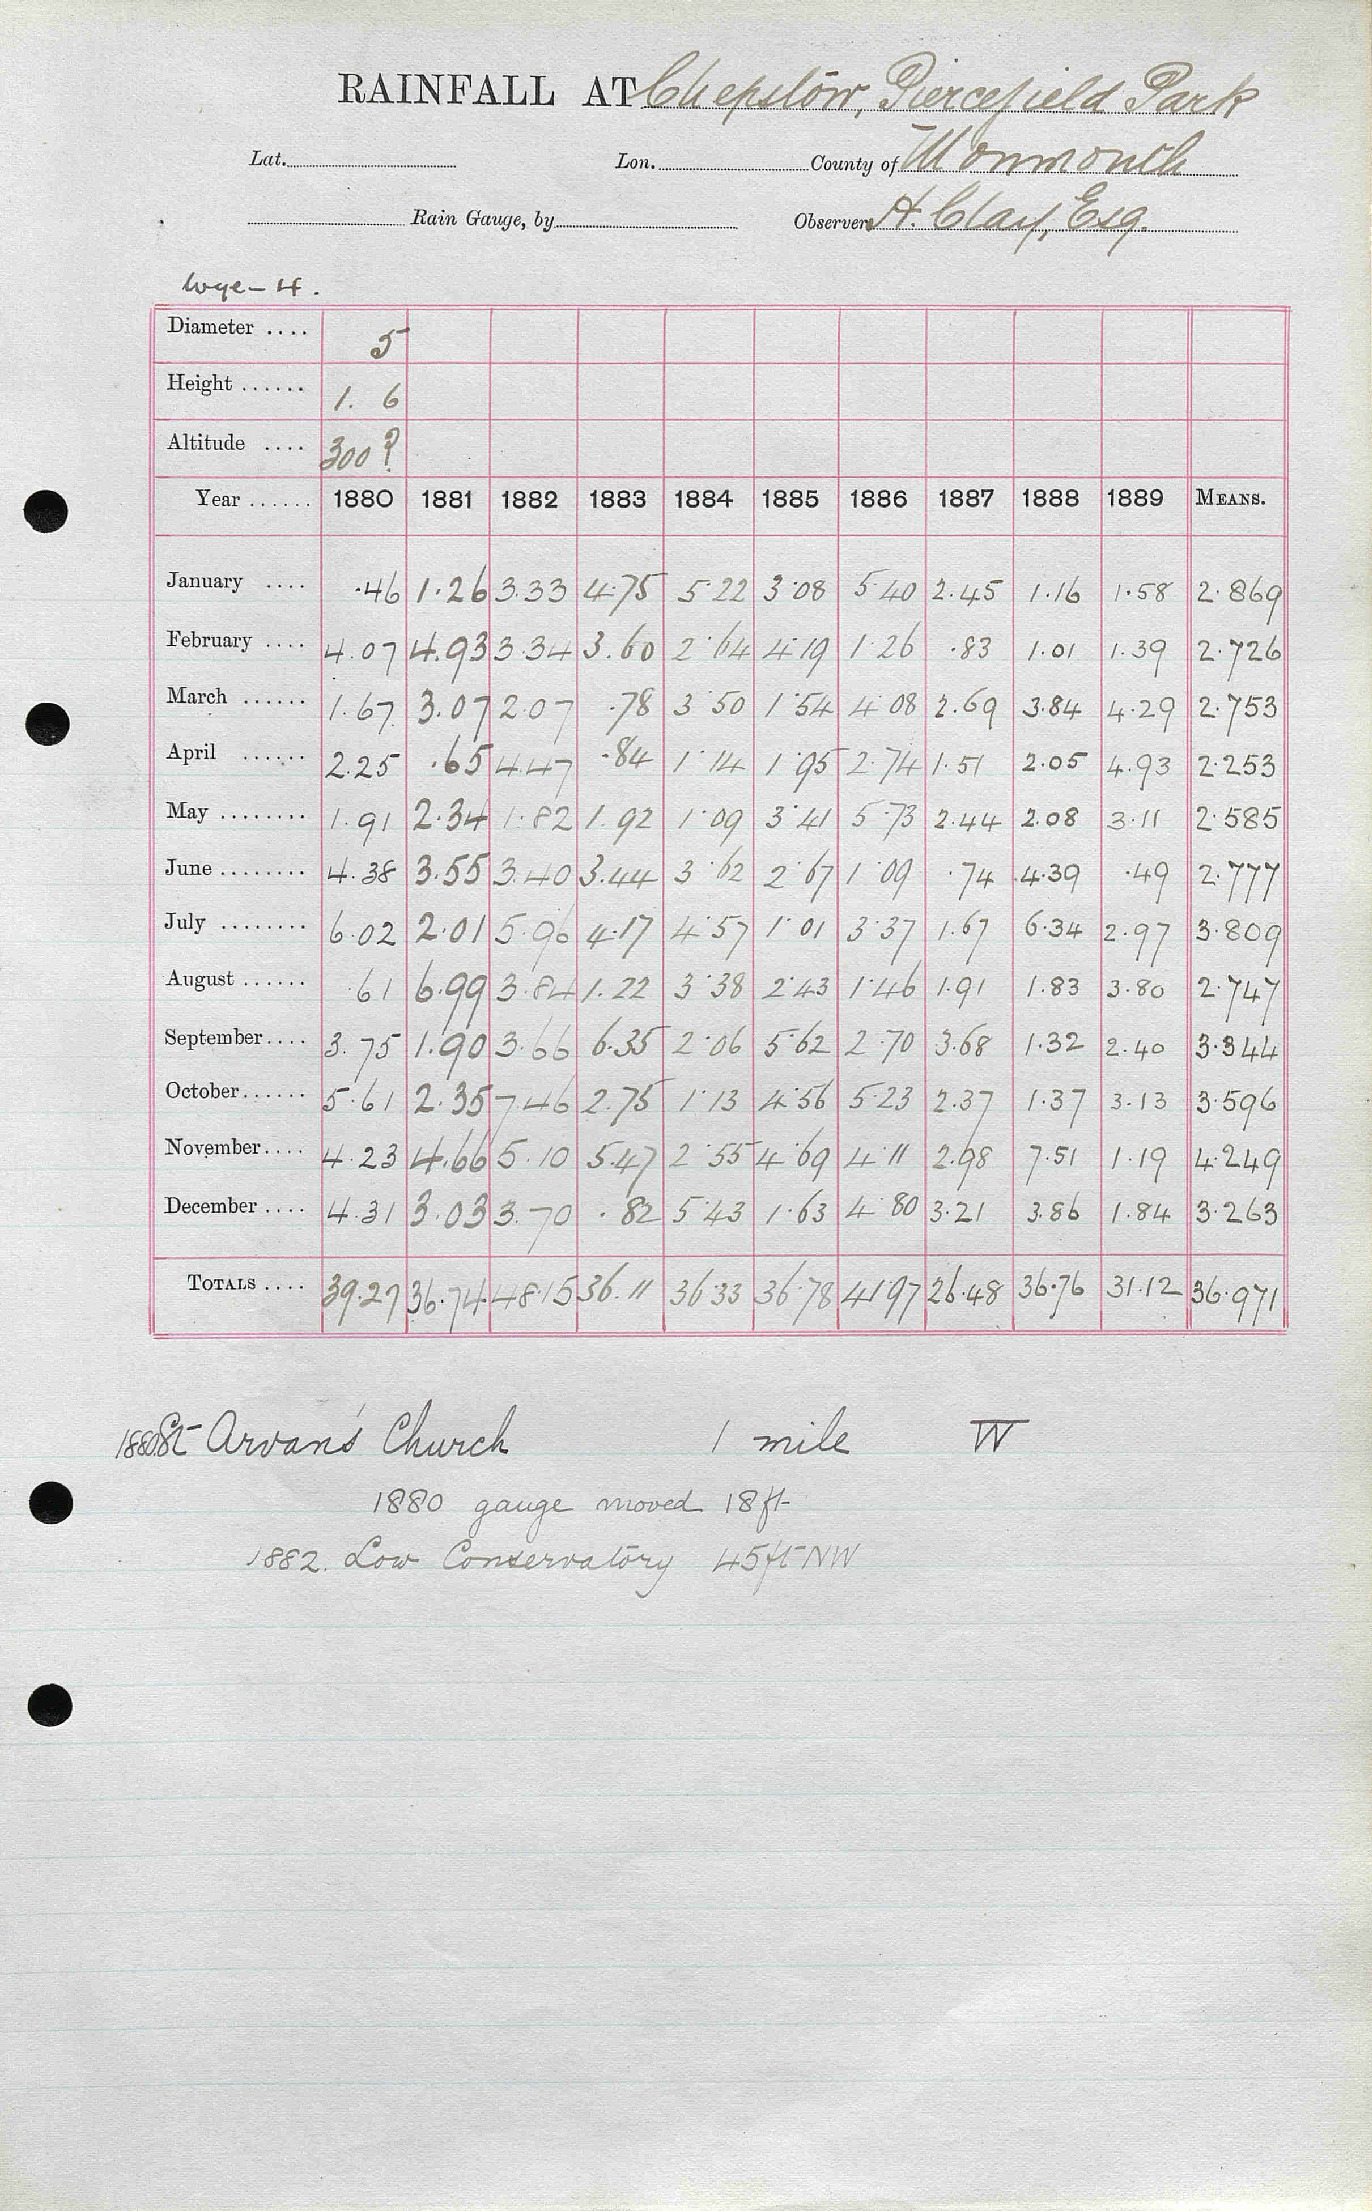 RAINFALL AT Chepstow, Piercefield Park
Lat. Lon. County of Monmouth
Rain Gauge, by Observer A. Clay, Esq.
Wye - 4.
Diameter .... 5
Height ...... 1. 6
Altitude .... 300?
Year ...... 1880 1881 1882 1883 1884 1885 1886 1887 1888 1889 MEANS.
January .... .46 1.26 3.33 4.75 5.22 3.08 5.40 2.45 1.16 1.58 2.869
February .... 4.07 4.93 3.34 3.60 2.64 4.19 1.26 .83 1.01 1.39 2.726
March ...... 1.67 3.07 2.07 .78 3.50 1.54 4.08 2.69 3.84 4.29 2.753
April ...... 2.25 .65 4.47 .84 1.14 1.95 2.74 1.51 2.05 4.93 2.253
May ........ 1.91 2.34 1.82 1.92 1.09 3.41 5.73 2.44 2.08 3.11 2.585
June ........ 4.38 3.55 3.40 3.44 3.62 2.67 1.09 .74 4.39 .49 2.777
July ........ 6.02 2.01 5.96 4.17 4.57 1.01 3.37 1.67 6.34 2.97 3.809
August ...... .61 6.99 3.84 1.22 3.38 2.43 1.46 1.91 1.83 3.80 2.747
September .... 3.75 1.90 3.66 6.35 2.06 5.62 2.70 3.68 1.32 2.40 3.344
October ...... 5.61 2.35 7.46 2.75 1.13 4.56 5.23 2.37 1.37 3.13 3.596
November .... 4.23 4.66 5.10 5.47 2.55 4.69 4.11 2.98 7.51 1.19 4.249
December .... 4.31 3.03 3.70 .82 5.43 1.63 4.80 3.21 3.86 1.84 3.263
TOTALS .... 39.27 36.74 48.15 36.11 36.33 36.78 41.97 26.48 36.76 31.12 36.971
1880 St Arvan's Church 1 mile W
1880 gauge moved 18ft
1882. Low Conservatory 45ft NW